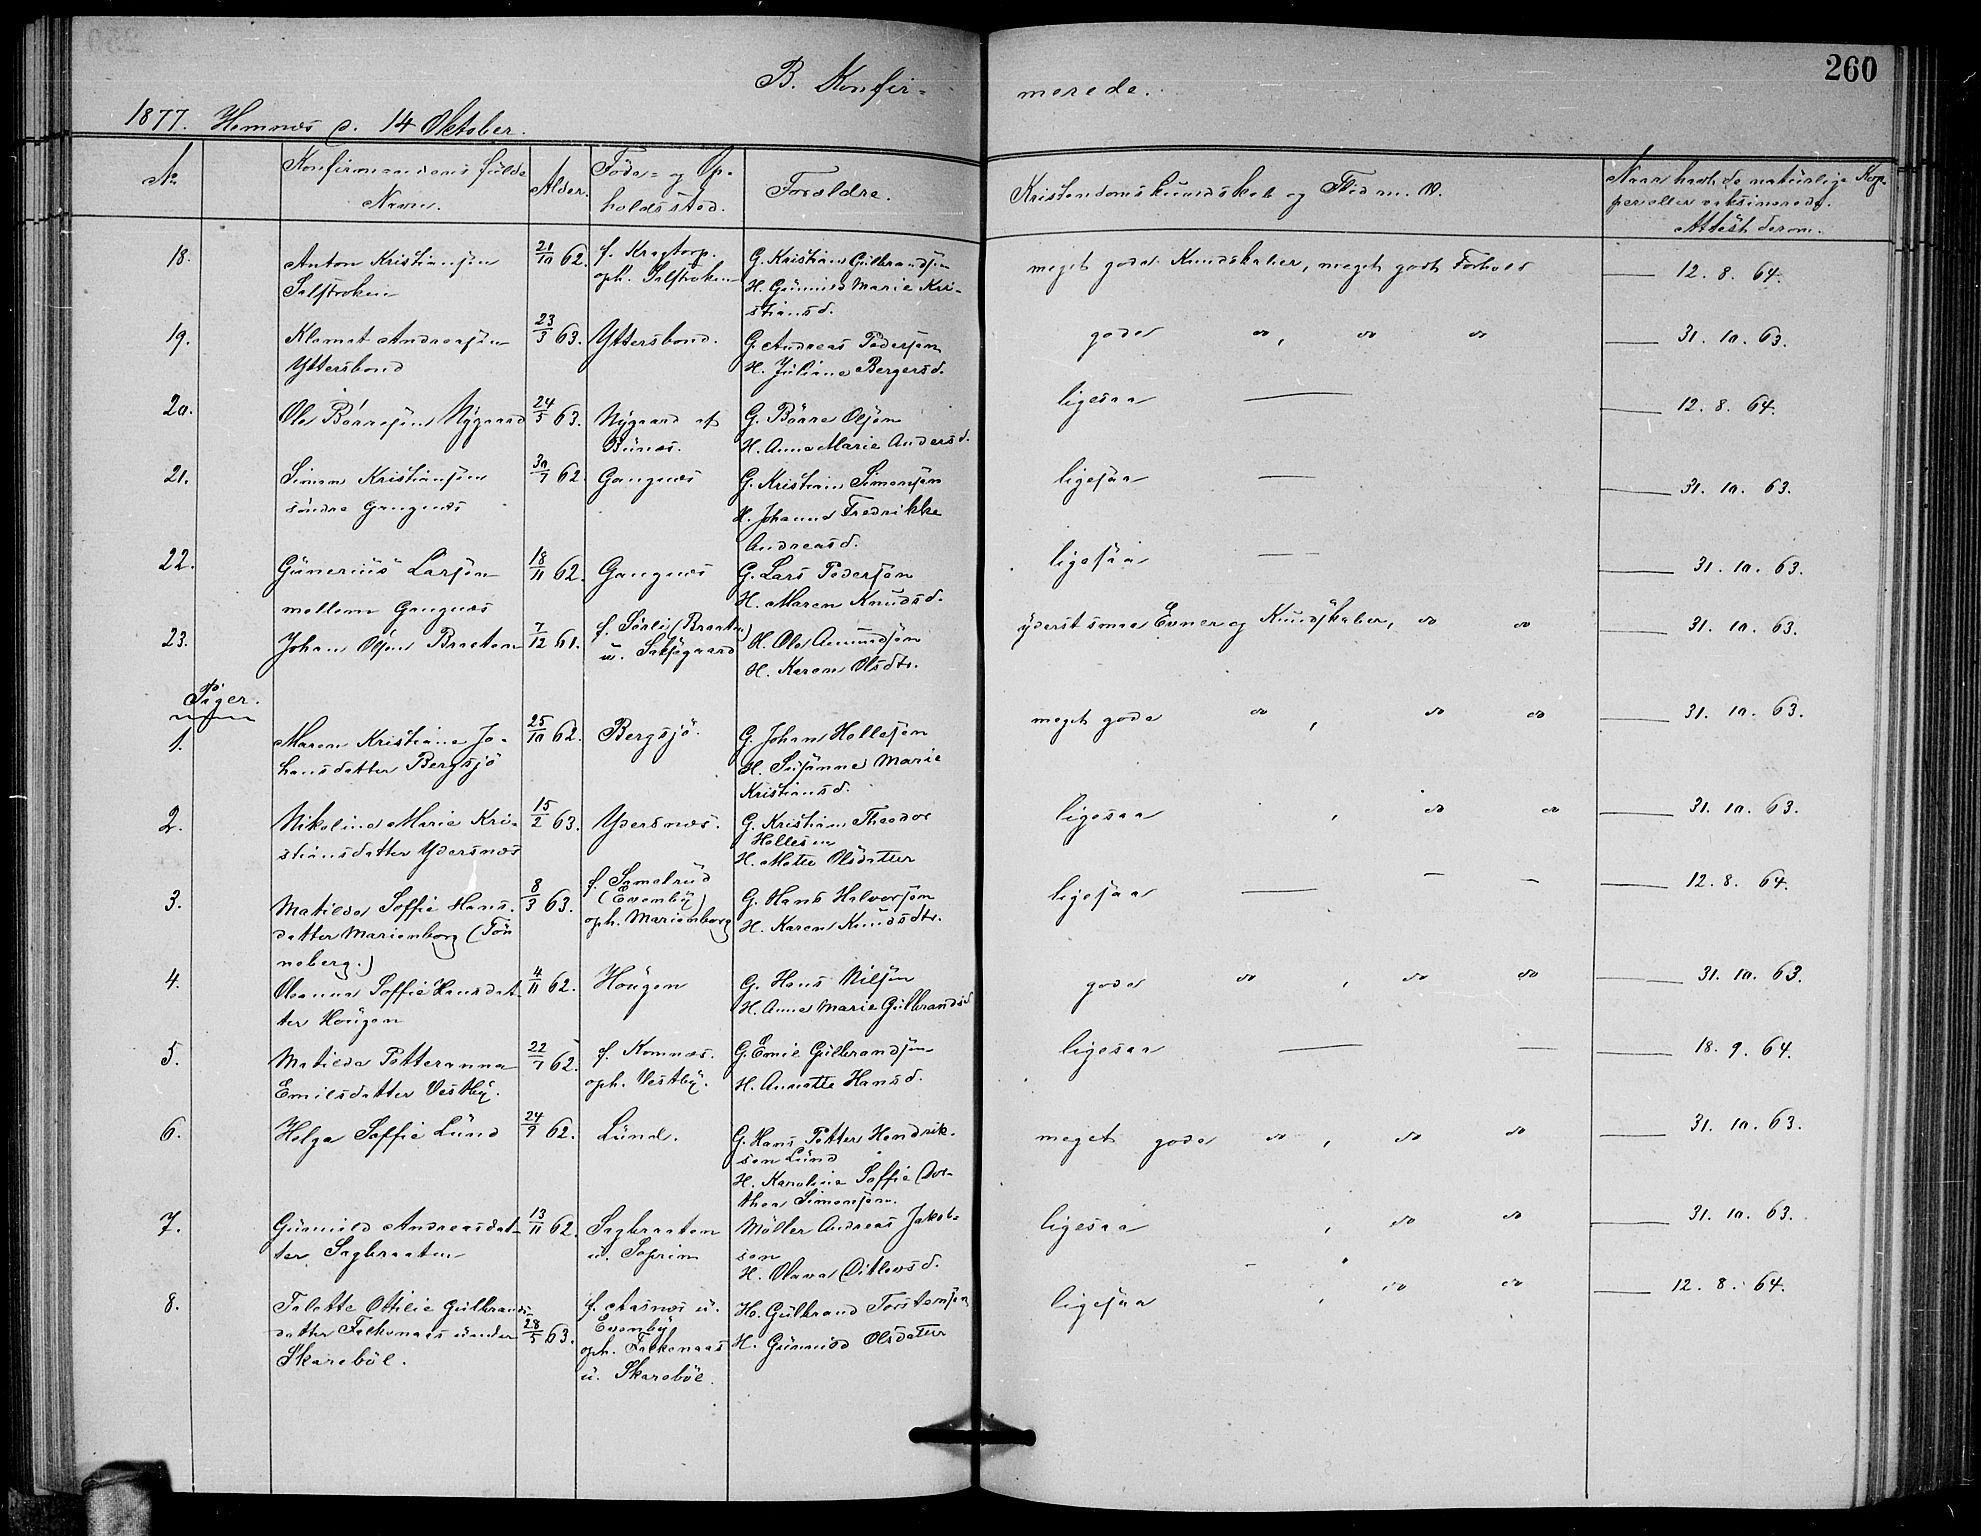 260
B. Konfir=
merede.
1877. Hemnæs d. 14 Oktober.
No
Konfirmandens fulde
Navn.
Alder.
Føde- og Op-
holdssted.
Forældre.
Kristendomskundskab og Flid m. V.
Naar havt de naturlige Kop-
per eller vaksinerede.
Attest derom.
18.
Anton Kristiansen
21/10 62.
f.
oph.
G. Kristian Gulbrandsen
H. Gunnild Marie Kri-
stiansd.
meget gode Kundskaber, meget godt Forhold
12. 8. 64.
19.
Klemet Andreasen
Yttersbond
23/3 63.
Yttersbond.
G. Andreas Pedersen
H. Juliane Bergersd.
gode do, do do
31. 10. 63.
20.
Ole Børresen Nygaard
24/5 63.
Nygaard af
Bunes.
G. Børre Olsen
H. Anne Marie Andersd.
ligesaa
12. 8. 64.
21.
Simen Kristiansen
søndre Gangnæs
30/7 62.
Gangnæs
G. Kristian Simensen
H. Johanne Fredrikke
Andreasd.
ligesaa
31. 10. 63.
22.
Gunerius Larsen
mellem Gangnæs
18/11 62.
Gangnæs
G. Lars Pedersen
H. Maren Knudsd.
ligesaa
31. 10. 63.
23.
Johan Olsen Braaten
7/12 61.
f. Sørli (Braaten)
u.
H. Ole Amundsen
H. Karen Olsdtr.
yderst smaa Evner og Kundskaber, do do
31. 10. 63.
Piger.
1.
Maren Kristiane Jo-
hansdatter Bergsjø
25/10 62.
Bergsjø.
G. Johan Hellesen
H. Susanne Marie
Kristiansd.
meget gode do, do do
31. 10. 63.
2.
Nikoline Marie Kri-
stiansdatter Ydersnæs
15/2 63.
Ydersnæs.
G. Kristian Theodor
Hellesen
H. Mathe Olsdatter
ligesaa , do do
31. 10. 63.
3.
Matilde Soffie Hans-
datter Marienborg (Tøn
neberg.)
8/3 63.
f. Semelrud
(Evenby)
oph. Marienborg
G. Hans Halvorsen
H. Karen Knudsdtr.
ligesaa
12. 8. 64.
4.
Oleanna Soffie Hansdat-
ter Hougen
4/11 62.
Hougen
G. Hans Nilsen
H. Anne Marie Gulbrandsd
gode do, do do
31. 10. 63.
5.
Matilde Petteranna
Emilsdatter Vestby.
22/7 62.
f. Komnæs.
oph. Vestby.
G. Emil Gulbrandsen
H. Annette Hansd.
ligesaa
18. 9. 64.
6.
Helga Soffie Lund
24/9 62.
Lund.
G. Hans Petter Hendrik-
sen Lund
H. Karoline Soffie Dor-
thea Simensen.
meget gode do, do do
31. 10. 63.
7.
Gunnild Andreasdat-
ter Sagbraaten
13/11 62.
Sagbraaten
u. Soprim
Møller Andreas Jakob-
sen
H. Olava Ditlevsd.
ligesaa , do do
31. 10. 63.
8.
Talette Ottilie Gulbrands-
datter Falkenaas under
Skarebøl.
28/5 63.
f. Aasnes u.
Evenby
oph. Falkenaas
u. Skarebøl.
H. Gulbrand Torstensen
H. Gunnild Olsdatter
ligesaa , do do
12. 8. 64.